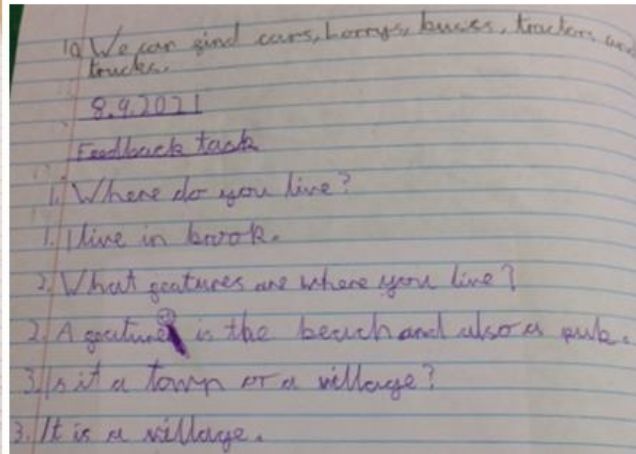 1a We can find cars, Lorrys, buses, tractors and
trucks.
8.9.2021
Feedback task
1. Where do you live?
1. I live in brook.
2. What features are where you live?
2. A feature is the beach and also a pub.
3. Is it a town or a village?
3. It is a village.